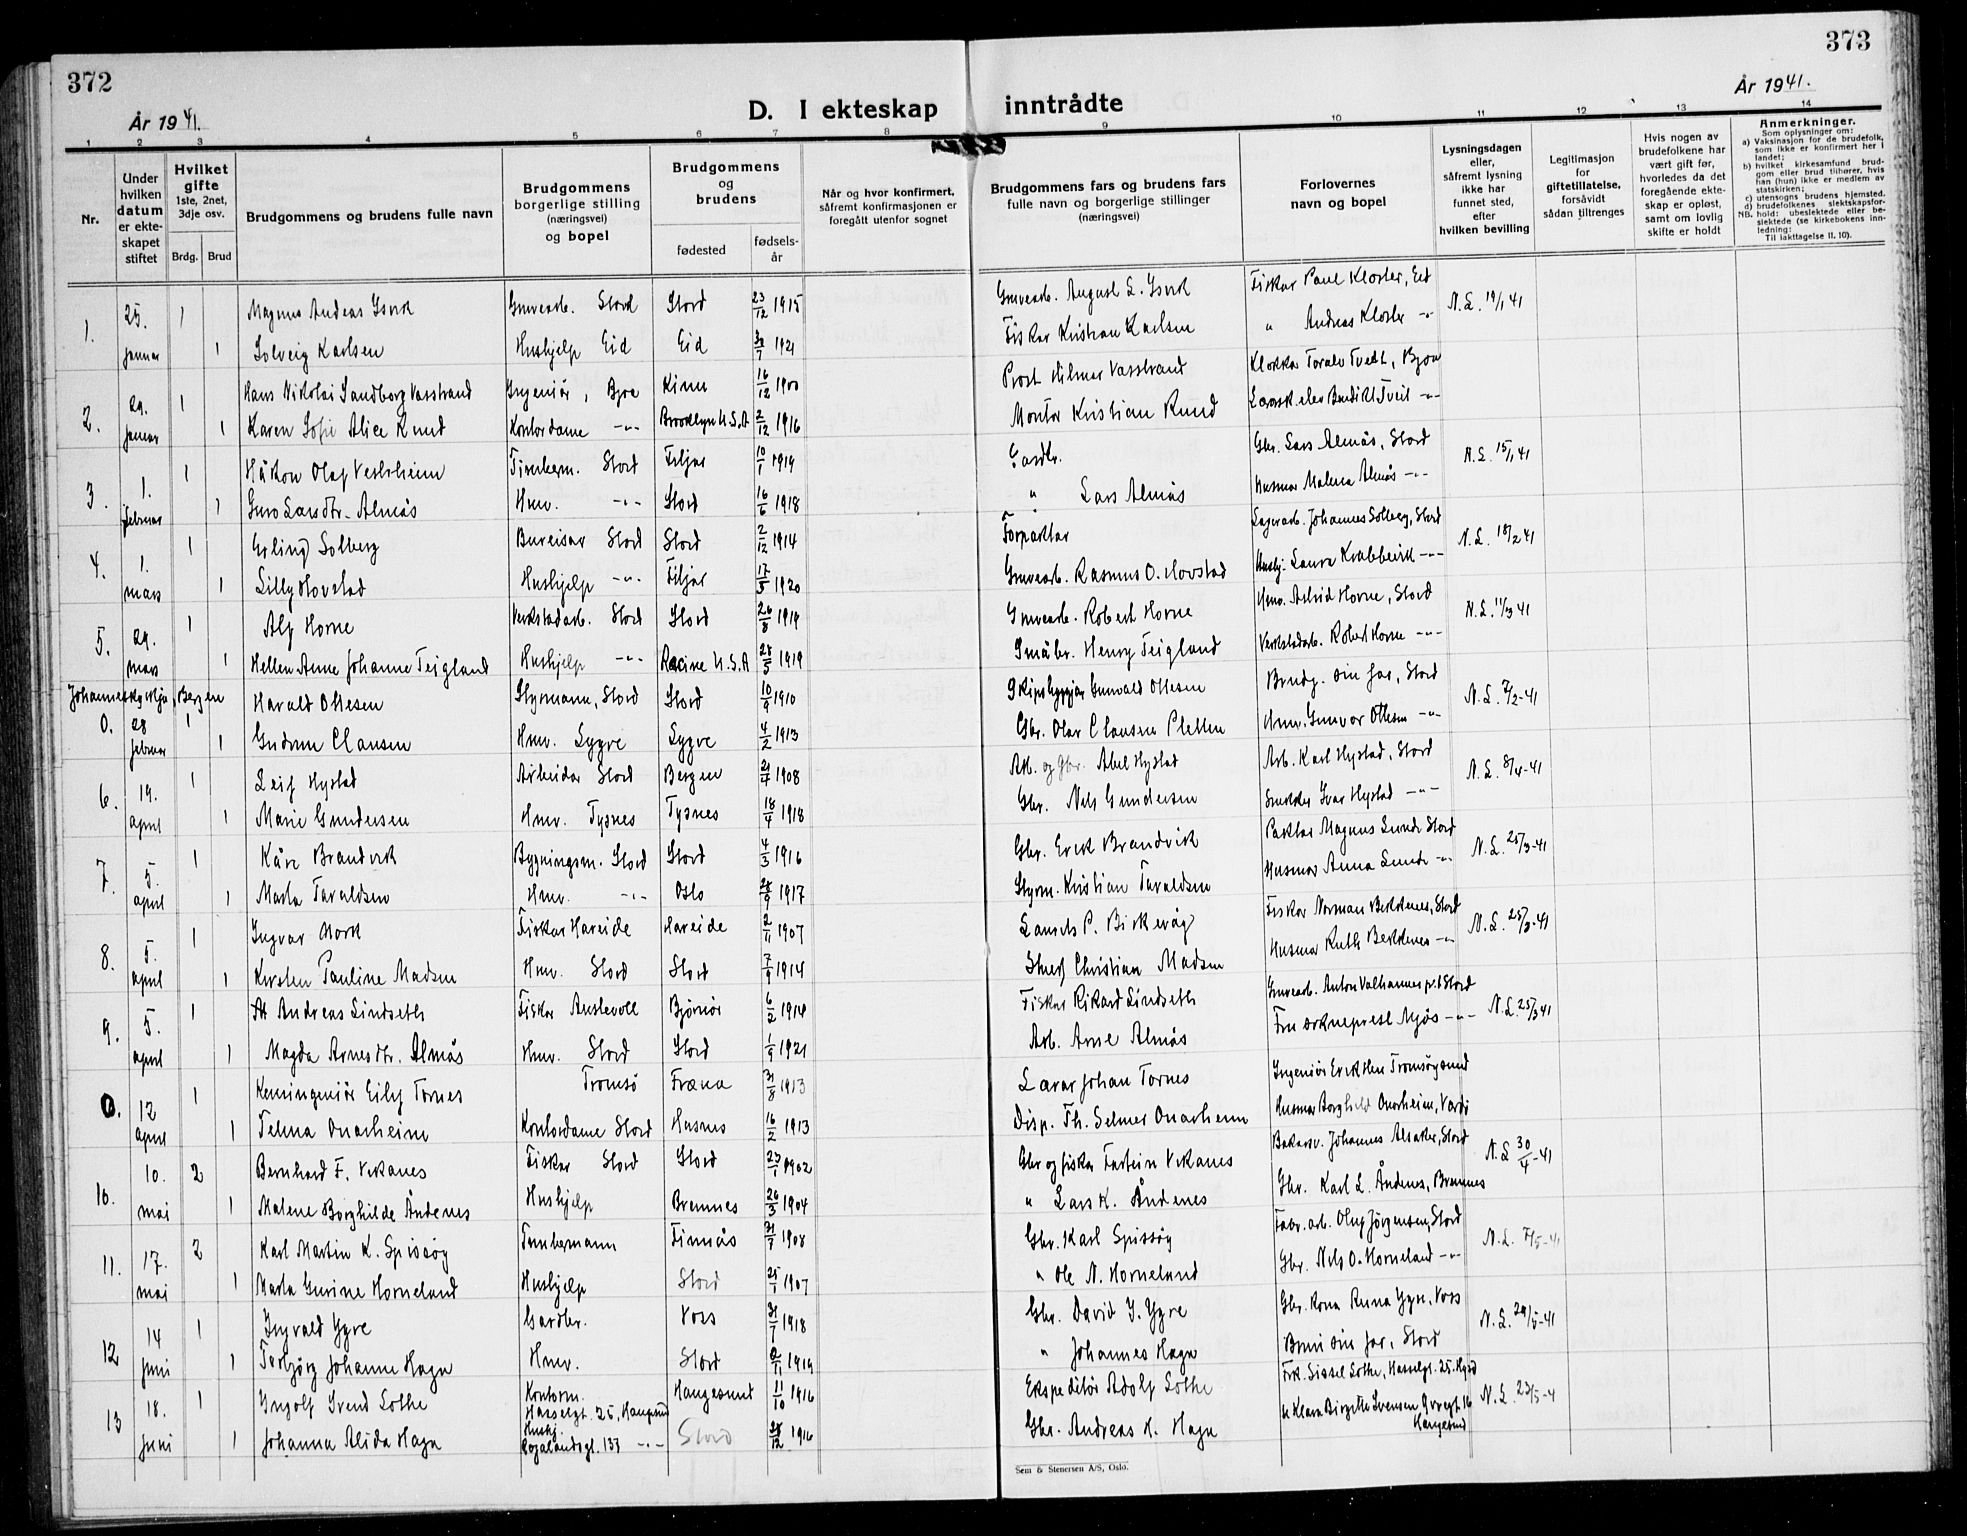 372
373
År 1941.
År 1941.
D. I ekteskap inntrådte
1 2 3 4 5 6 7 8 9 10 11 12 13 14
Nr.
Under hvilken datum er ekteskapet stiftet
Hvilket gifte 1ste, 2net, 3dje osv.
Brdg. Brud
Brudgommens og brudens fulle navn
Brudgommens borgerlige stilling (næringsvei) og bopel
Brudgommens og brudens
fødested
fødselsår
Når og hvor konfirmert, såfremt konfirmasjonen er foregått utenfor sognet
Brudgommens fars og brudens fars fulle navn og borgerlige stillinger (næringsvei)
Forlovernes navn og bopel
Lysningsdagen eller, såfremt lysning ikke har funnet sted, efter hvilken bevilling
Legitimasjon for giftetillatelse, forsåvidt sådan tiltrenges
Hvis nogen av brudefolkene har vært gift før, hvorledes da det foregående ekteskap er opløst, samt om lovlig skifte er holdt
Anmerkninger.
Som oplysninger om:
a) Vaksinasjon for de brudefolk, som ikke er konfirmert her i landet;
b) hvilket kirkesamfund brudgom eller brud tilhører, hvis han (hun) ikke er medlem av statskirken;
c) utensogns brudens hjemsted.
d) brudefolkenes slektskapsforhold: ubeslektede eller beslektede (se kirkebokens innledning:
NB. Til iakttagelse II. 10).
1. 25. januar 1 Magnus Andreas Isvik Gruvearb. Stord Stord 23/12 1915 Gruvearb. August L. Isvik Fiskar Paul Kloster, Eid N.L. 19/1 41
1 Solveig Karlsen Hushjelp Eid Eid 1921 Fiskar Kristian Karlsen " Andreas Kloster -"-
2. 29. januar 1 Hans Nikolai Sandborg Vasstrand Ingeniør, Byre Kinn 16/12 1900 Prost Hilmar Vasstrand Klokkar Toralv Tvedt,
1 Karen Sofie Alice Knud Kontordame -"- Brooklyn U.S.A 2/12 1916 Montør Kristian Knud Benedikt Tveit -"-
3. 1. februar 1 Håkon Olaf Vestrheim Tømberm. Stord Fitjar 10/1 1914 Gardbr. Gbr. Lars Almås, Stord N.L. 15/1 41
1 Guro Larsdtr. Almås Hmv. -"- Stord 16/6 1918 " Lars Almås Husmor Malena Almås -"-
4. 1. mars 1 Erling Solberg Bureisar Stord Stord 2/12 1914 Forpaktar Lagerarb. Johannes Solberg, Stord N.L. 18/2 41
1 Lilly Hovstad Hushjelp -"- Fitjar 17/5 1920 Gruvearb. Rasmus O. Hovstad Hushj. Laura Krabbeirk -"-
5. 29. mars 1 Alf Horne Verkstadarb. Stord Stord 26/8 1914 Gruvearb. Robert Horne Hmv. Astrid Horne, Stord N.L. 11/3 41
1 Hellen Anne Johanne Teigland Hushjelp -"- Racine U.S.A 28/5 1919 Småbr. Henry Teigland Verkstadarb. Robert Horne -"-
Johanneskyrkja, Bergen
0. 28 februar 1 Harald Ottesen Styrmann, Stord Stord 10/9 1910 Skipsbyggjar Gunvald Ottesen Brudg. sin far, Stord N.L. 7/2-41
1 Gudrun Clausen Hmv. Lygre Lygre 4/2 1913 Gbr. Olav Clausen Pletten Hmv. Gunvor Ottesen -"-
6. 19. april 1 Leif Hystad Arbeidar Stord Bergen 21/4 1908 Arb. og Gbr. Abel Hystad Arb. Karl Hystad, Stord N.L. 8/4-41
1 Marie Gundersen Hmv. Tysnes Tysnes 18/4 1918 Gbr. Nils Gundersen Snikkar Ivar Hystad -"-
7. 5. april 1 Kåre Brandvik Bygningsm. Stord Stord 4/3 1916 Gbr. Erik Brandvik Paktar Magnus Lunde Stord N.L. 25/3-41
1 Marta Taraldsen Hmv. -"- Oslo 28/9 1917 Styrm. Kristian Taraldsen Husmor Anna Lunde -"-
8. 5. april 1 Ingvar Mork Fiskar Hareide Hareide 2/11 1907 Landh. P. Birkevåg Fiskar Norman Bekkenes, Stord N.L. 25/3-41
1 Kirsten Pauline Madsen Hmv. Stord Stord 7/9 1914 Smed Christian Madsen Husmor Ruth Bekkenes -"-
9. 5. april 1 Andreas Lindseth Fiskar Austevoll Bjørnør 6/2 1914 Fiskar Rikard Lindseth Gruvearb. Anton Valhammer p.t. Stord N.L. 25/3 41
1 Magda Arnesdtr. Almås Hmv. Stord Stord 1/9 1921 Arb. Arne Almås Fru sokneprest Mjøs -"-
0. 12 april 1 Kemiingeniør Eilif Tornes Tromsø Fræna 31/8 1913 Lærar Johan Tornes Ingeniør Erik Tromsøysund
1 Telma Onarheim Kontordame Stord Husnes 16/2 1913 Disp. Th. Selmer Onarheim Husmor Borghild Onarheim,
10. 10. mai 2 Bernhard F. Vikanes Fiskar Stord Stord 23/1 1902 Gbr og fiskar Fartein Vikanes Bakarsv. Johannes Alsaker, Stord N.L 30/4-41
1 Malene Borghilde Åndenes Hushjelp Bremnes 26/3 1904 " Lars K. Åndenes Gbr. Karl L. Åndenes, Bremnes
11. 17. mai 2 Karl Martin K. Spissøy Tømbermann Finnås 1908 Gbr. Karl Spissøy Fabr.arb. Oluf Jørgensen, Stord N.L. 7/5-41
1 Marta Gurine Horneland Hushjelp Stord 25/1 1907 " Ole N. Horneland Gbr. Nils O. Horneland -"-
12 14 juni 1 Ingvald Ygre Gardbr. Voss 31/7 1918 Gbr. David I. Ygre Gbr. kona Runa Ygre, Voss N.L. 29/5-41
1 Torbjørg Johanne Haga Hmv. Stord 1919 " Johannes Haga Bruri sin far, Stord
13 18. juni 1 Ingolf Svend Lothe Kontorm. Hasselgt. 25, Haugesund Haugesund 11/10 1916 Ekspeditør Adolf Lothe Frk. Sissel Lothe, Hasselgt. 25. N.L. 23/5-4
1 Johanna Alida Haga Hushj. Rogalandsgt. 133 -"- Stord 28/12 1916 Gbr. Andreas H. Haga Klara Birgitte Svensen 16 Haugesund
Sem & Stenersen A/S, Oslo.